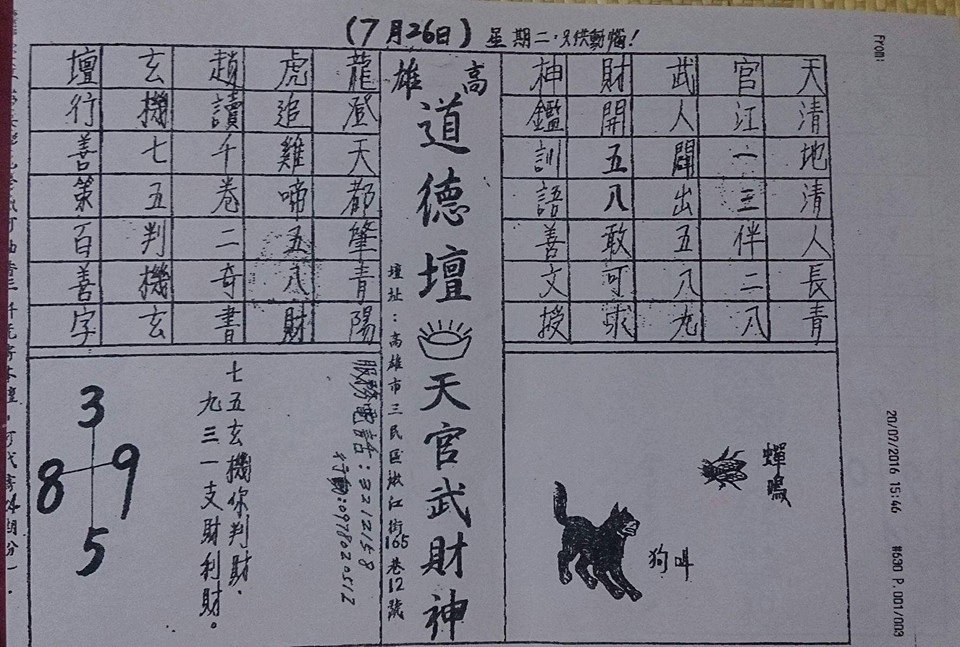 (7月26日) 星期二．只供動腦!
高雄
道德壇天官武財神
壇址：高雄市三民區松江街165巷12號
天清地清人長青
官江一三伴二八
武人開出五八九
財開五八敢可求
神鑑訓語善文授
龍登天都肇青陽
虎追雞啼五八財
趙讀千卷二奇書
玄機七五判機玄
壇行善策百善字
服務電話：3212158
行動：0978020512
七五玄機你判財．
九三一支財利財。
3
8 9
5
蟬鳴
狗叫
From:
20/07/2016 15:46
#630 P.001/003